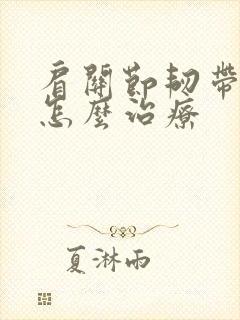 肩關節韧帶
怎麼治療
夏淋雨